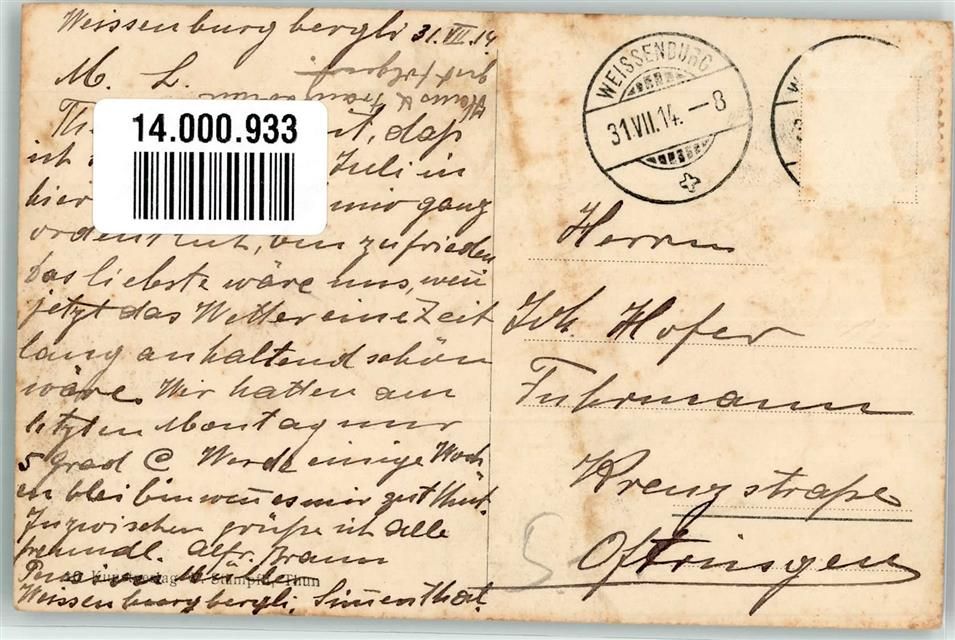 Weissenburgbergli 31.VII.14
M. L.
14.000.933
daß
ich Juli in
hier mir ganz
ordentlich, bin zufrieden
Das liebste wäre uns, weñ
jetzt das Wetter eine Zeit
lang anhaltend schön
wäre. Wir hatten am
letzten Montag nur
5 Grad C Werde einige Woch
en bleiben weñ es mir gut thut.
Inzwischen grüße ich alle
freundl. Alfr. Braun
Pension
Weissenburgbergli, Simenthal.
Stämpfli, Thun
WEISSENBURG
31.VII.14.–8
W
Herrn
Joh. Hofer
Fuhrmann
Kreuzstraße
Oftringen